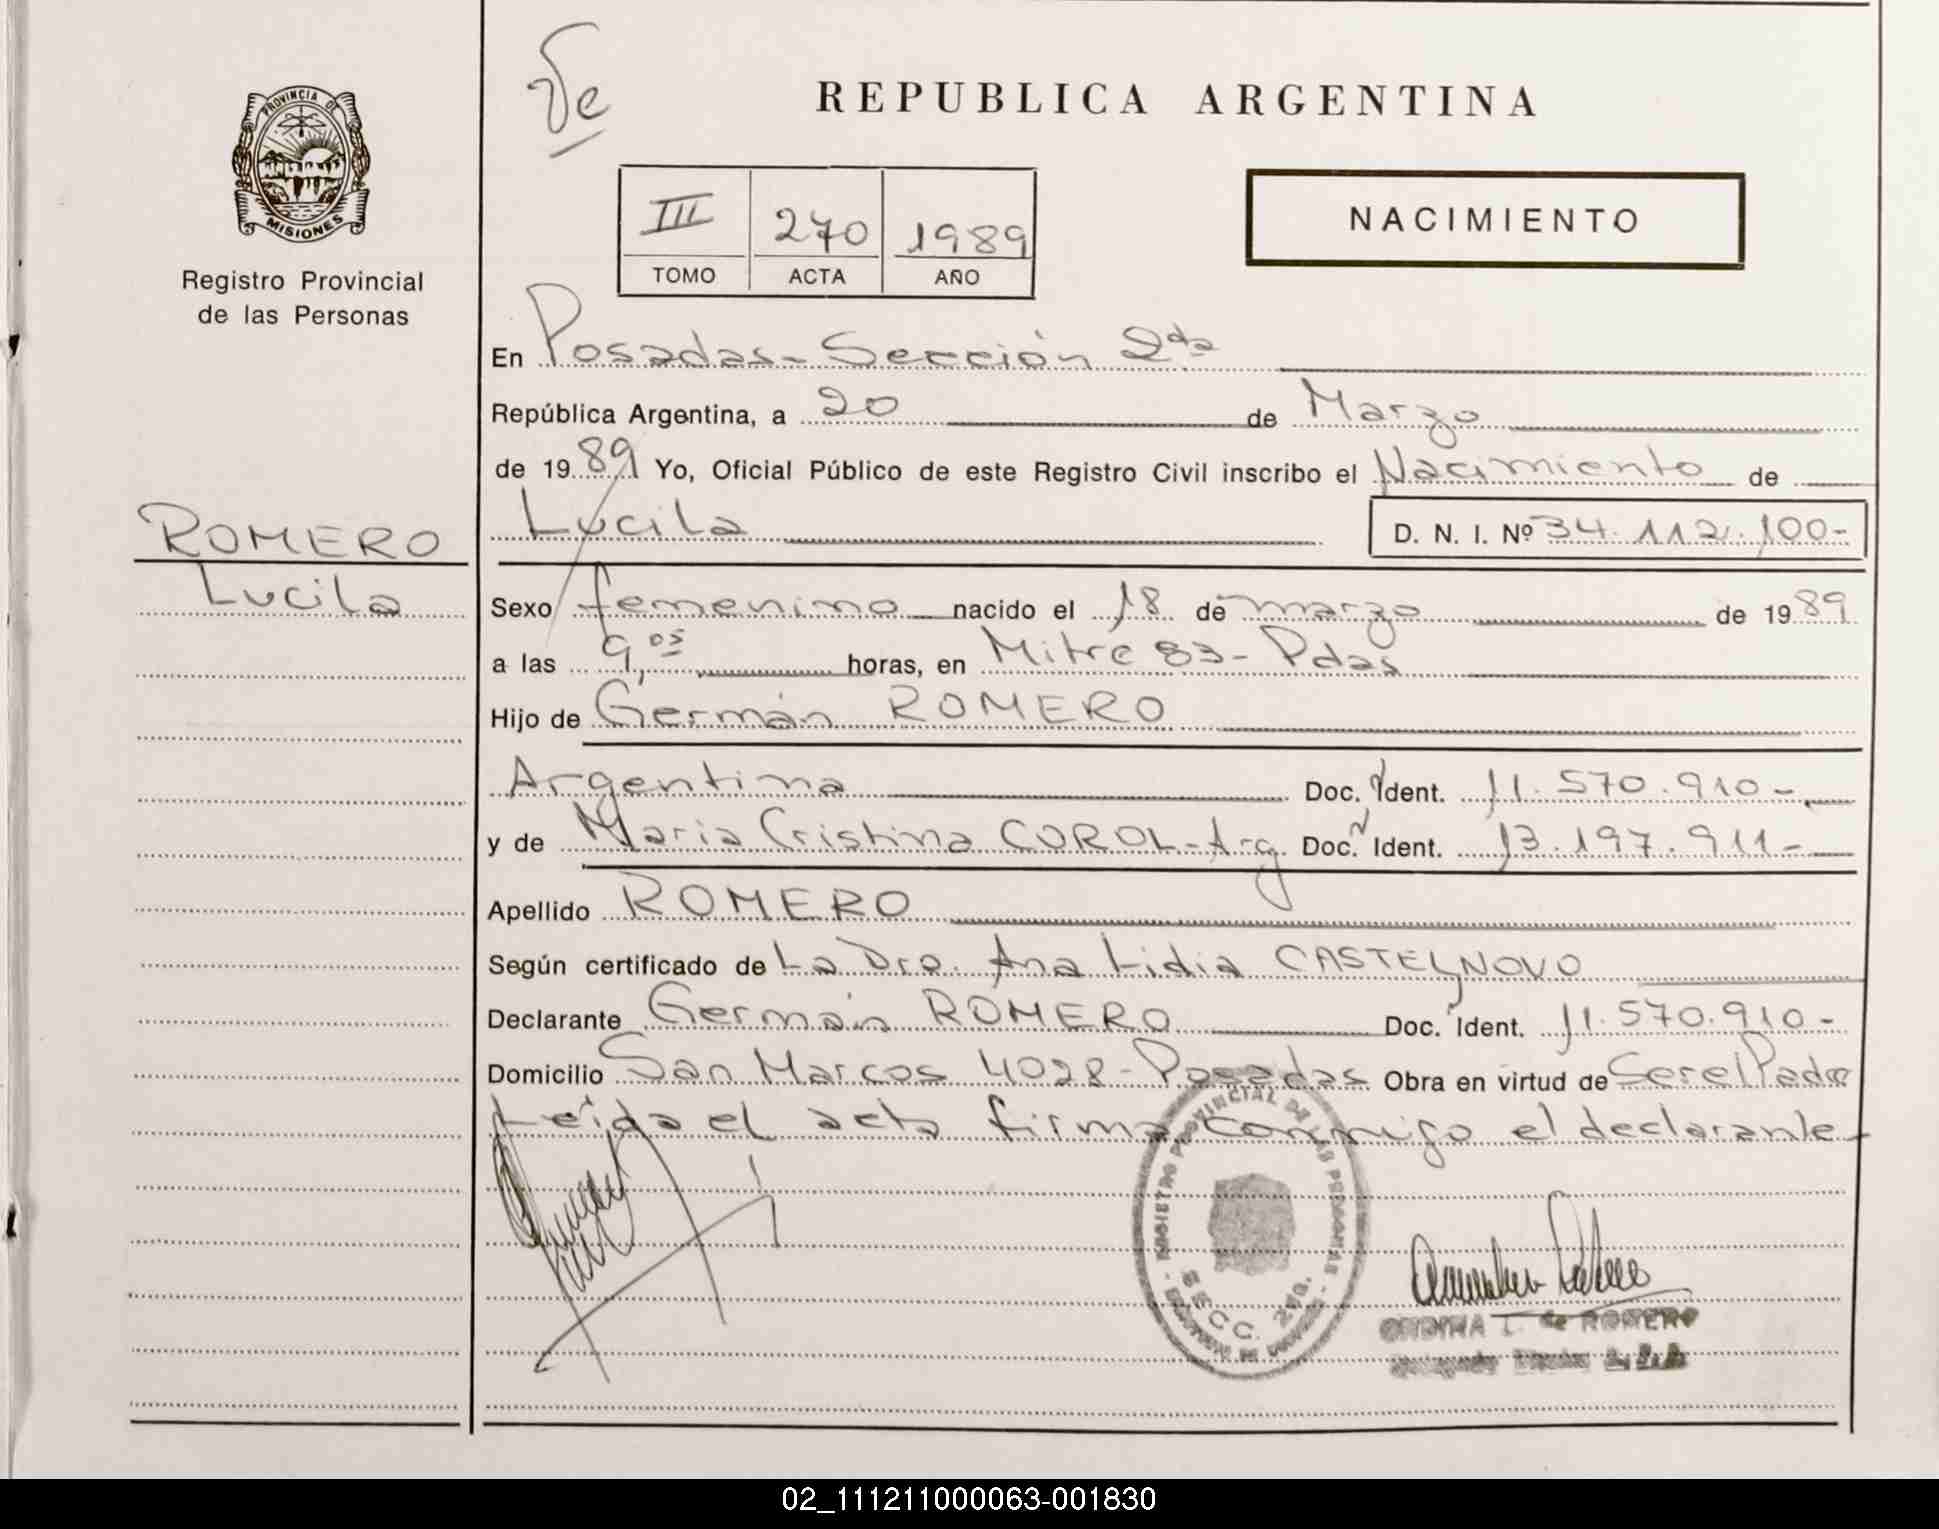 Ve
REPUBLICA ARGENTINA
PROVINCIA DE
MISIONES
Registro Provincial
de las Personas
III 270 1989
TOMO ACTA AÑO
NACIMIENTO
En Posadas - Sección 2da
República Argentina, a 20 de Marzo
de 1989 Yo, Oficial Público de este Registro Civil inscribo el Nacimiento de
Lucila D. N. I. Nº 34.112.100-
ROMERO
Lucila
Sexo femenino nacido el 18 de marzo de 1989
a las 9,05 horas, en Mitre 83 - Pdas
Hijo de Germán ROMERO
Argentina Doc. Ident. 11.570.910-
y de Maria Cristina COROL - Arg Doc. Ident. 13.197.911-
Apellido ROMERO
Según certificado de La Dra. Ana Lidia CASTELNOVO
Declarante Germán ROMERO Doc. Ident. 11.570.910-
Domicilio San Marcos 4028 - Posadas Obra en virtud de Ser el Padre
Leída el acta firma conmigo el declarante-
REGISTRO PROVINCIAL DE LAS PERSONAS
SECC. 2da.
ONDINA L. de ROMERO
02_111211000063-001830